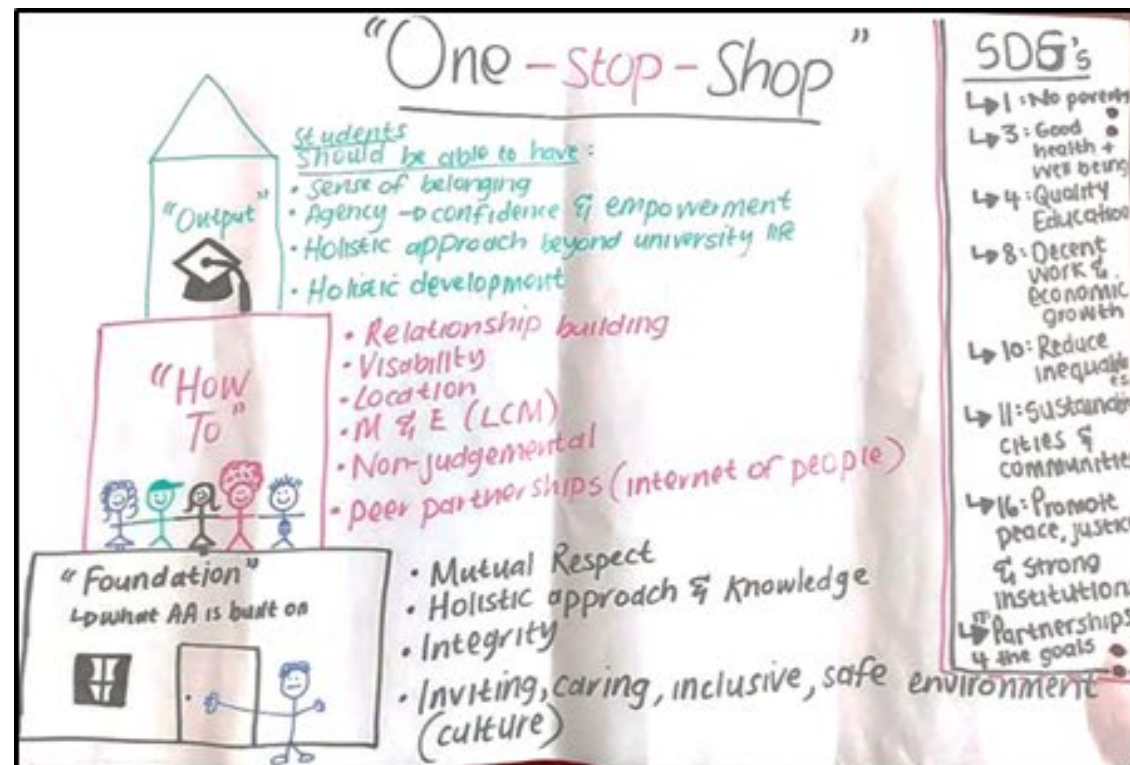 "One-Stop-Shop"
Students
should be able to have:
• Sense of belonging
• Agency → confidence & empowerment
• Holistic approach beyond university life
• Holistic development
"Output"
• Relationship building
• Visability
• Location
• M & E (LCM)
• Non-judgemental
• peer partnerships (internet of people)
"How
To"
"Foundation"
↳ what AA is built on
• Mutual Respect
• Holistic approach & Knowledge
• Integrity
• Inviting, caring, inclusive, safe environment
(culture)
SDG's
↳ 1: No poverty
↳ 3: Good
health +
well being
↳ 4: Quality
Education
↳ 8: Decent
work &
economic
growth
↳ 10: Reduce
inequalities
↳ 11: Sustainable
cities &
communities
↳ 16: Promote
peace, justice
& Strong
institutions
↳ 17 Partnerships
4 the goals